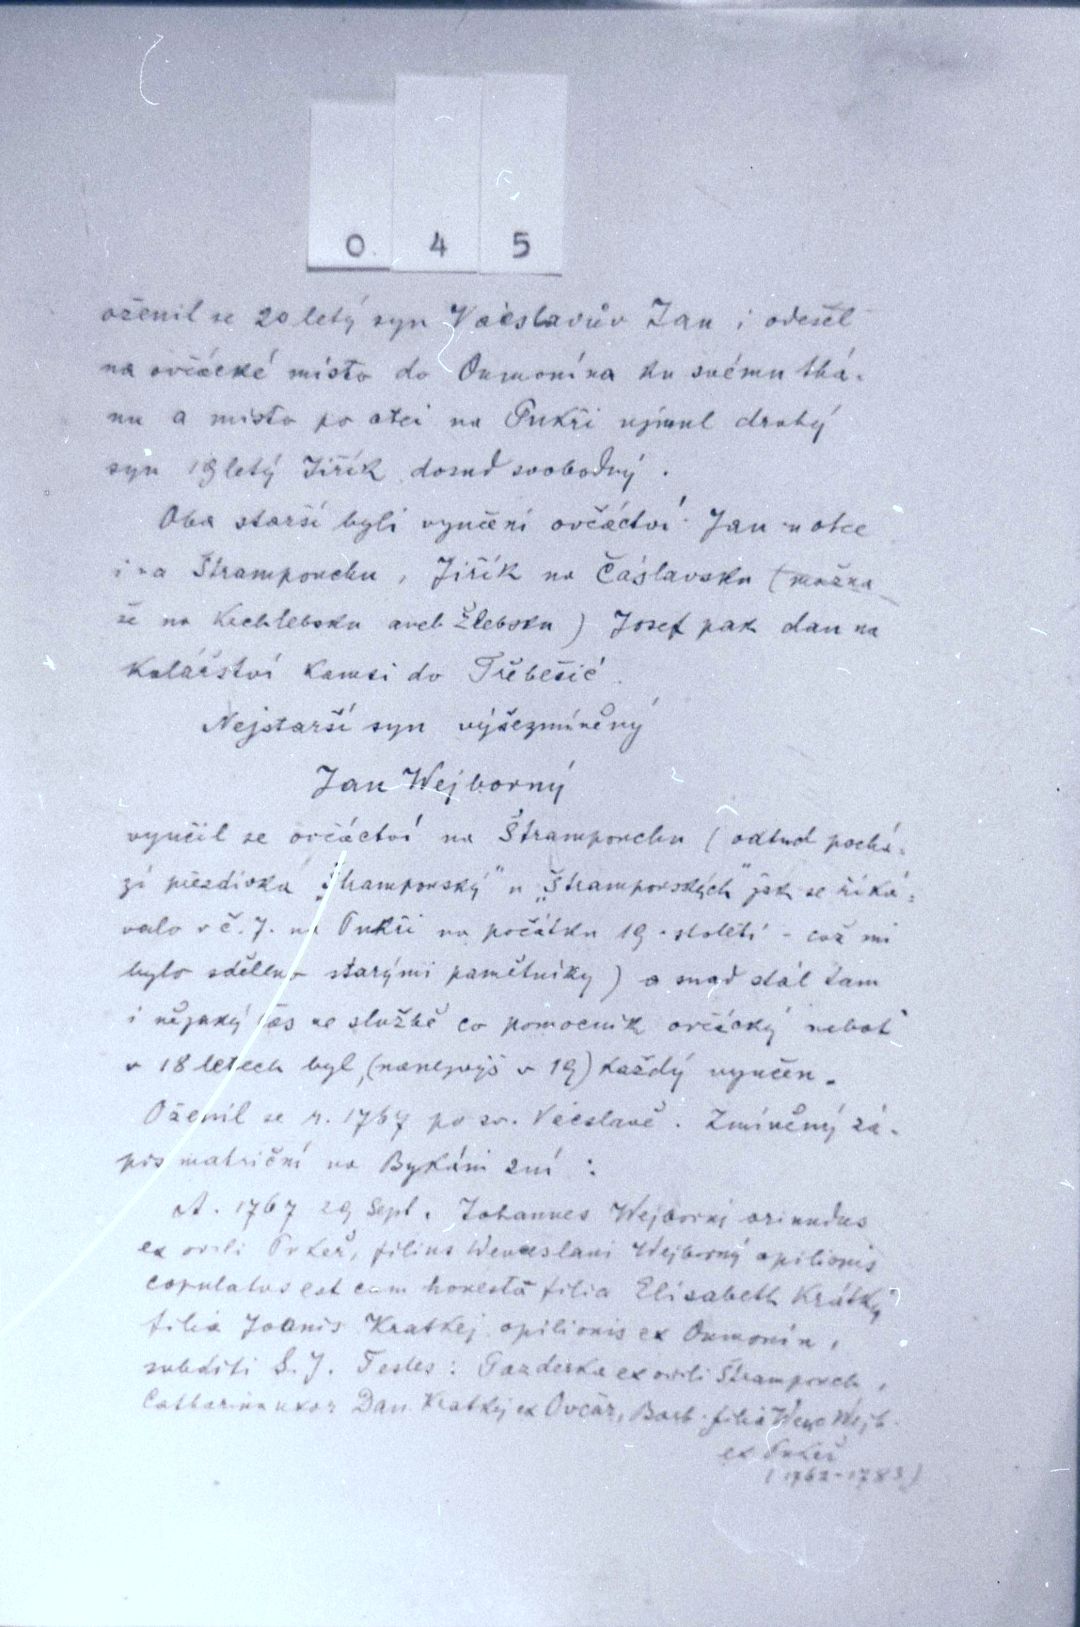 0 4 5
oženil se 20letý syn Václavův Jan i odešel
na ovčácké místo do Onmonína ku svému thá-
nu a místo po otci na Pukři ujmul druhý
syn 19letý Jiřík dosud svobodný.
Oba starší byli vyučeni ovčáctví Jan u otce
i na Štrampouchu, Jiřík na Čáslavsku (možna
že na Kechlebsku aneb Žlebsku) Josef pak dan na
kolářství kamsi do Třebešic.
Nejstarší syn výšezmíněný
Jan Wejborný
vyučil se ovčáctví na Štrampouchu (odtud pochá-
zí přezdívka „Štramporský" u „Štramporských" jak se říká-
valo v č. 7. na Pukři na počátku 19. století - což mi
bylo sděleno starými pamětníky) a snad stál tam
i nějaký čas ve službě co pomocník ovčácký neboť
v 18 letech byl (nanejvýš v 19) každý vyučen.
Oženil se r. 1767 po sv. Václavě. Zmíněný zá-
pis matriční na Bykáni zní:
A. 1767 29 Sept. Johannes Wejborný oriundus
ex ovili Pukeř, filius Wenceslani Wejborný opilionis
copulatus est cum honesta filia Elisabeth Krátký
filia Joanis Kratkej opilionis ex Onmonín,
subditi S. J. Testes: Gazderka ex ovili Štrampouch,
Catharina uxor Dan Kratkej ex Ovčár, Barb. filia Wenc Wejb.
ex Pukeř
(1762-1783)